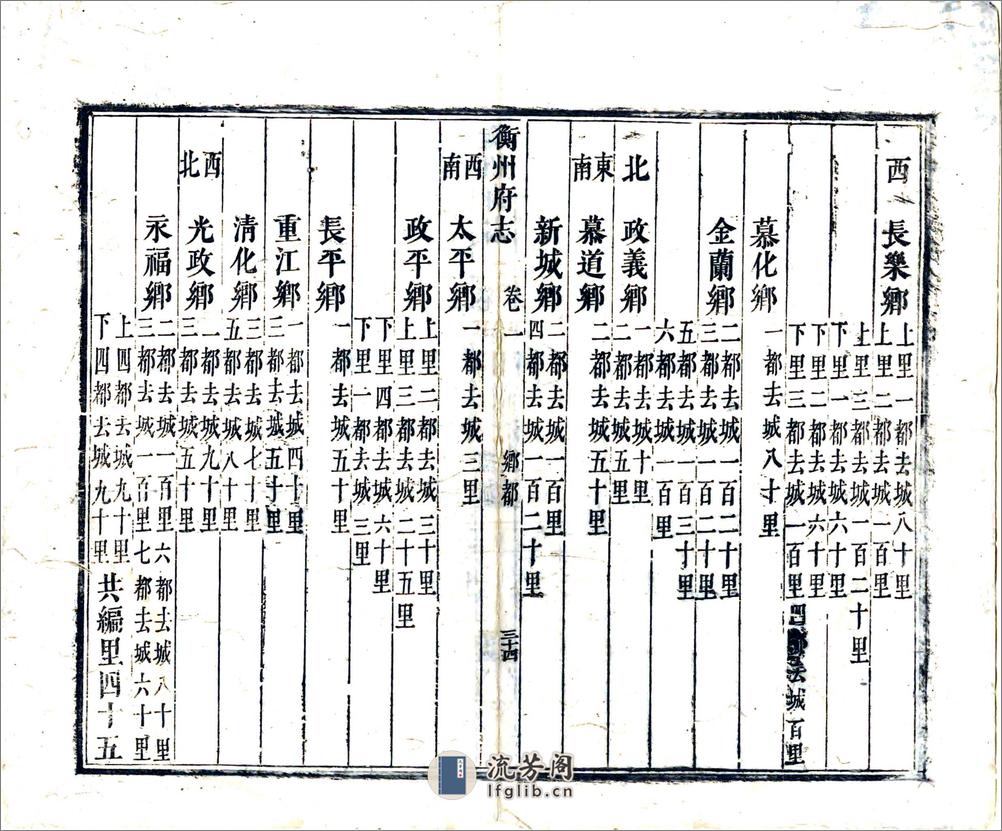 西 長樂鄉 上里一都去城八十里
上里二都去城一百里
上里三都去城一百二十里
下里一都去城六十里
下里二都去城六十里
下里三都去城一百里四都去城百里
慕化鄉 一都去城八十里
金蘭鄉 二都去城一百二十里
三都去城一百二十里
五都去城一百三十里
六都去城一百里
北 政義鄉 一都去城十里
二都去城五里
東南 慕道鄉 二都去城五十里
新城鄉 二都去城一百里
四都去城一百二十里
衡州府志 卷一 鄉都 三十四
西南 太平鄉 一都去城三里
政平鄉 上里二都去城三十里
上里三都去城二十五里
下里四都去城六十里
下里一都去城三里
長平鄉 一都去城五十里
重江鄉 一都去城四十里
三都去城五十里
清化鄉 三都去城七十里
五都去城八十里
西北 光政鄉 一都去城九十里
三都去城五十里
永福鄉 二都去城一百里六都去城八十里
三都去城一百里七都去城六十里
上四都去城九十里
下四都去城九十里
共編里四十五
流芳阁
lfglib.cn